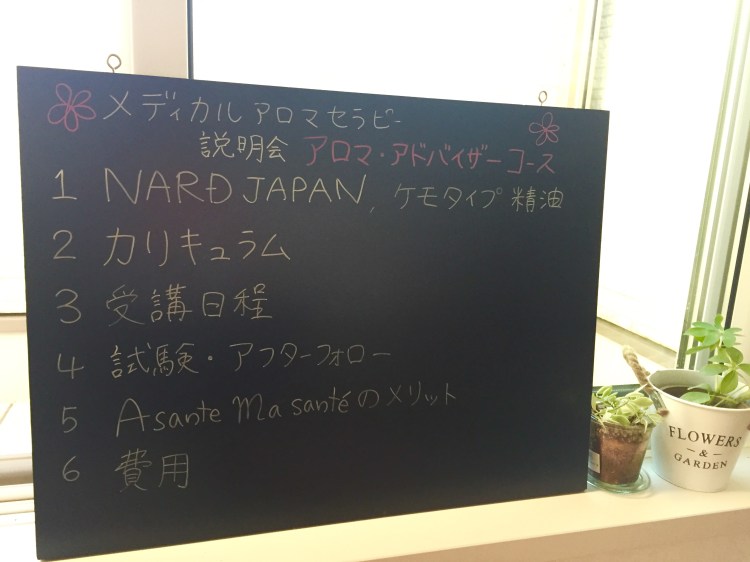 メディカル アロマセラピー
説明会 アロマ・アドバイザーコース
1 NARD JAPAN, ケモタイプ精油
2 カリキュラム
3 受講日程
4 試験・アフターフォロー
5 Asante Ma santéのメリット
6 費用
FLOWERS
&
GARDEN